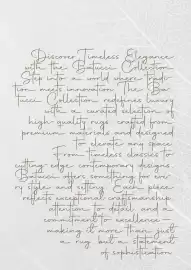 Discover Timeless Elegance
with the Batucci Collection
Step into a world where tradi-
tion meets innovation. The Ba-
tucci Collection redefines luxury
with a curated selection of
high-quality rugs crafted from
premium materials and designed
to elevate any space.
From timeless classics to
cutting-edge contemporary designs,
Batucci offers something for eve-
ry style and setting. Each piece
reflects exceptional craftsmanship,
attention to detail and a
commitment to excellence -
making it more than just
a rug but a statement
of sophistication